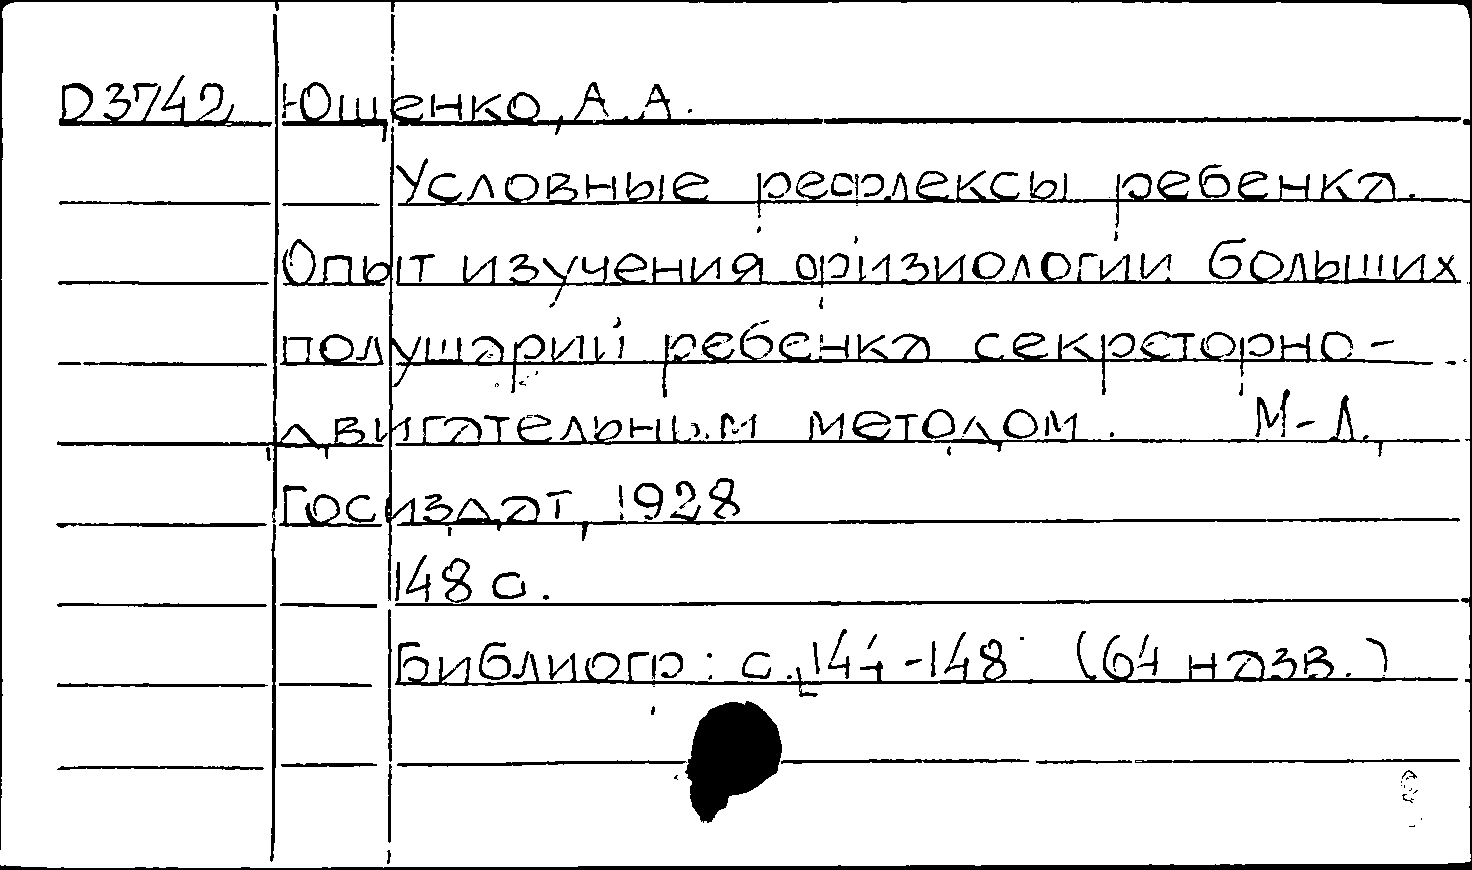 D3742 Ющенко, А.А.
Условные рефлексы ребенка.
Опыт изучения физиологии больших
полушарий ребенка секреторно-
двигательным методом. М-Л.,
Госиздат, 1928
148 с.
Библиогр: с. 144-148 (64 назв.)